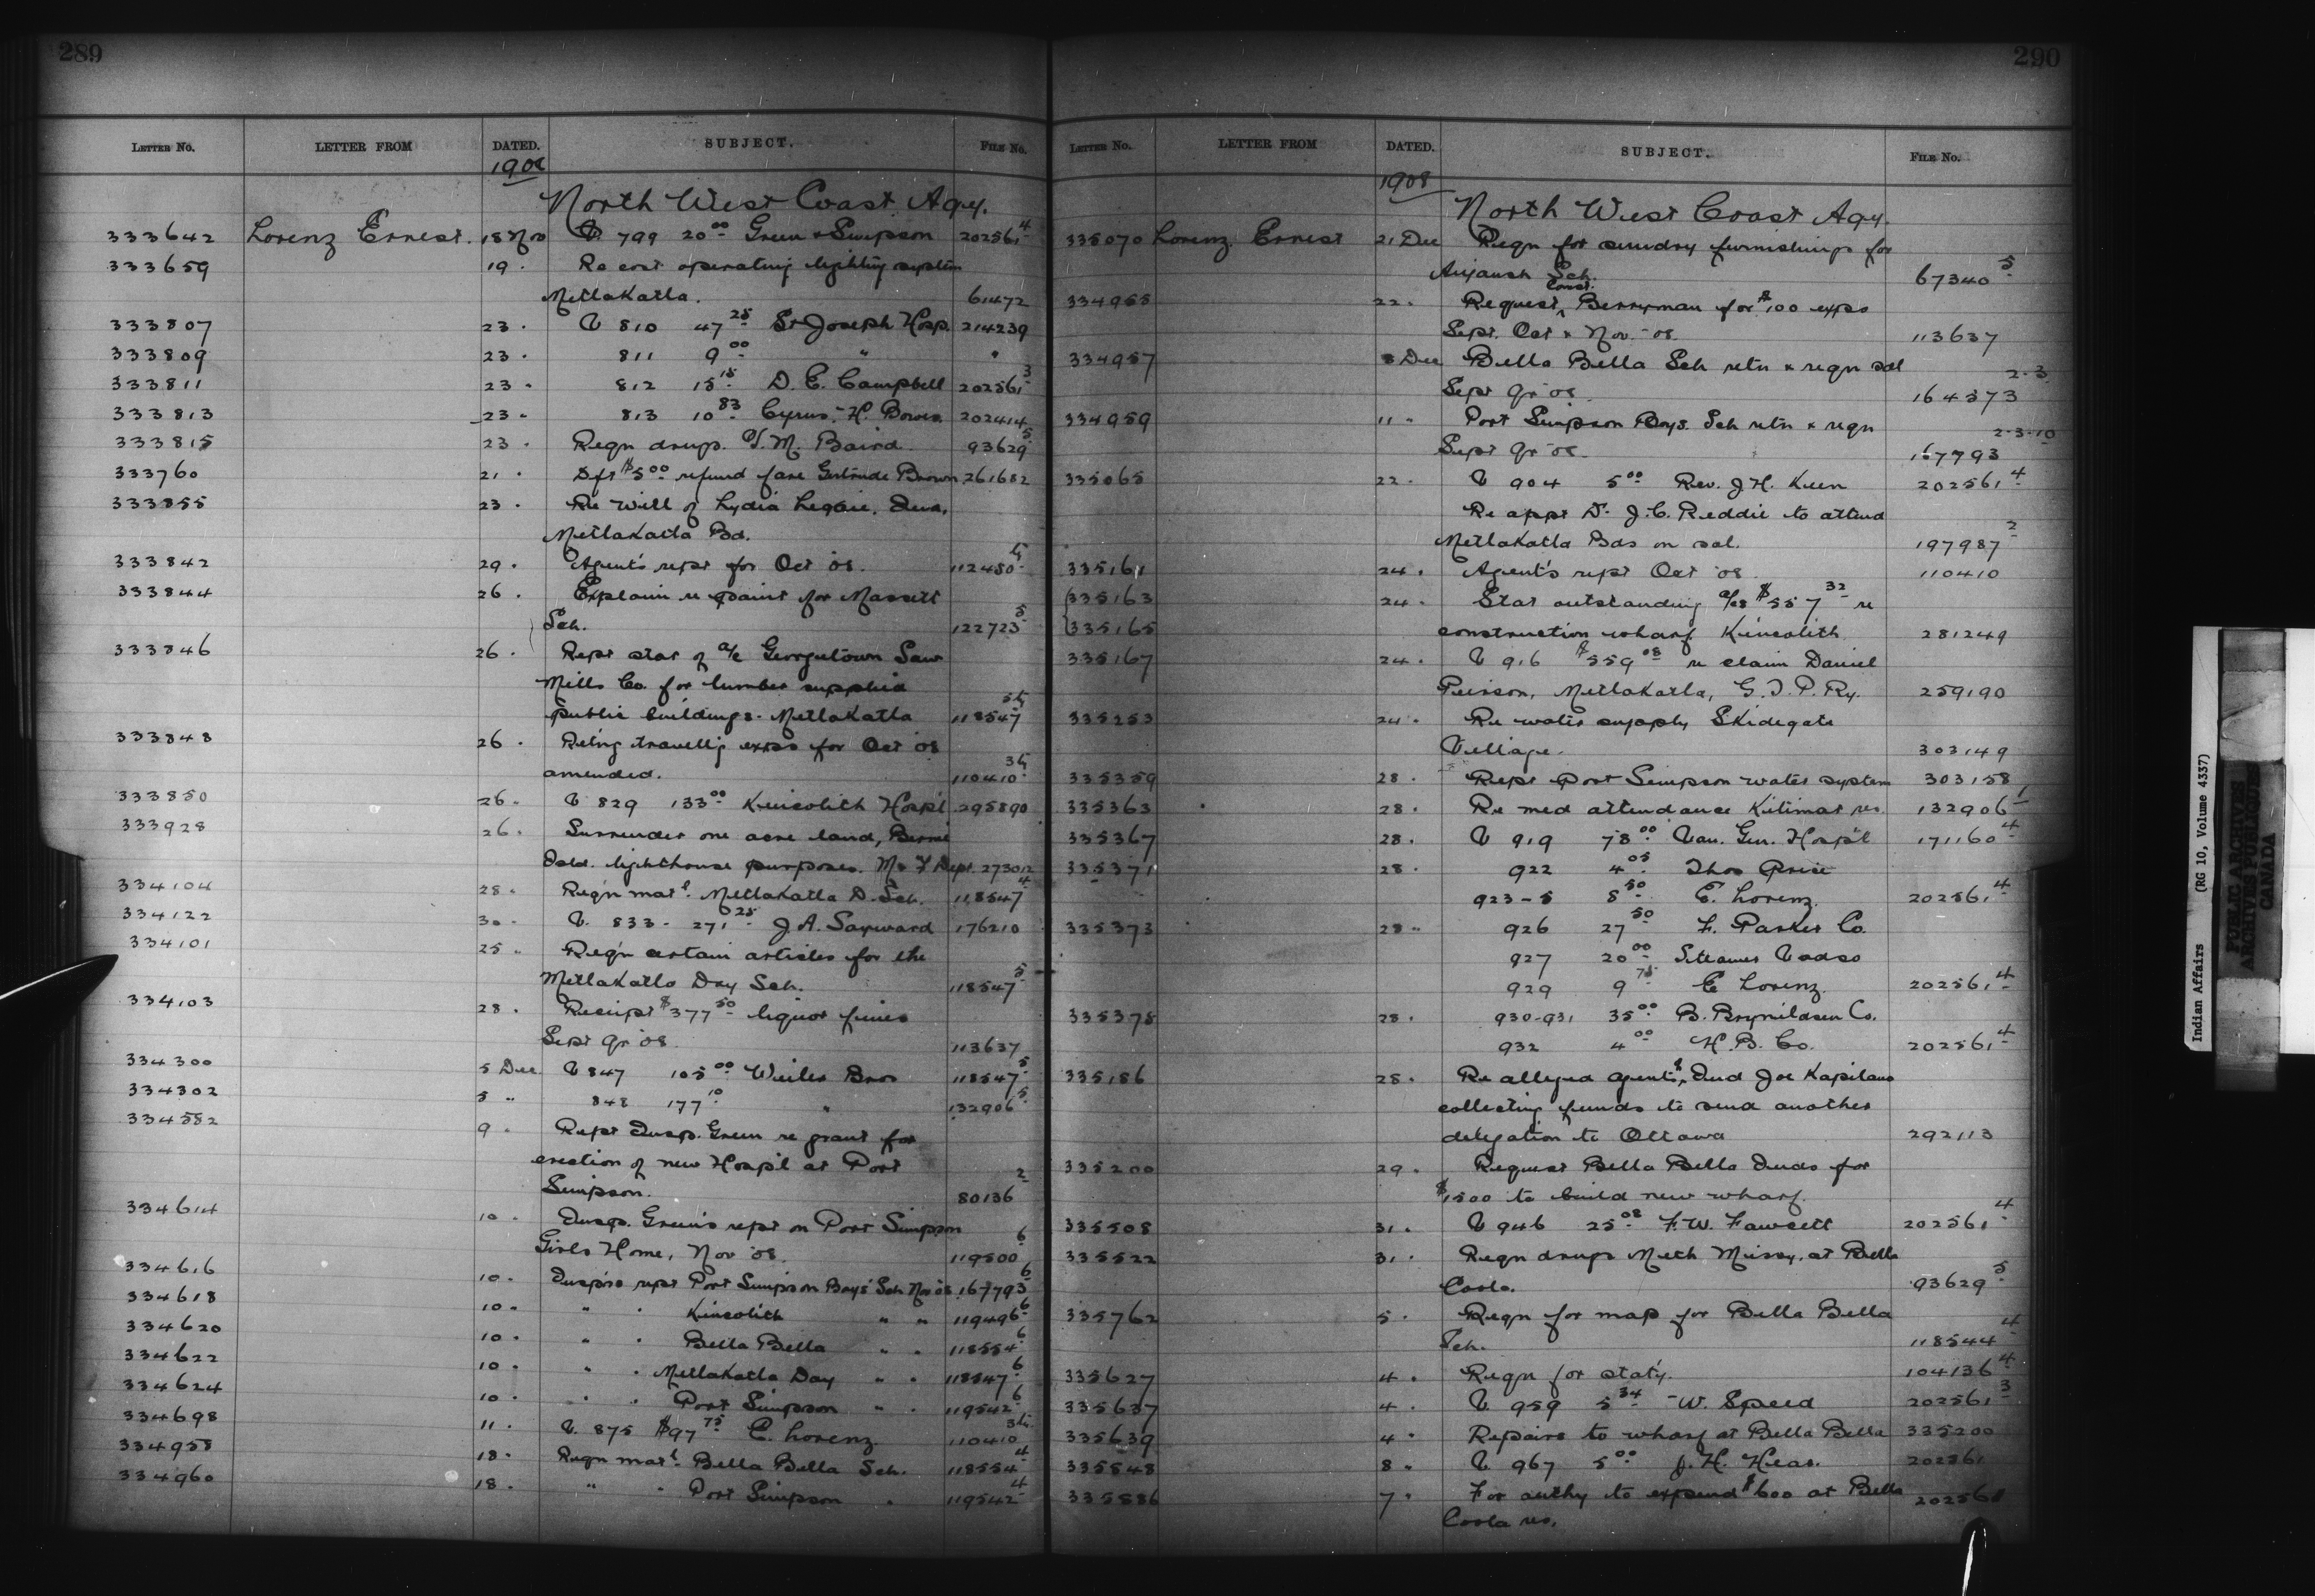 289
LETTER NO. LETTER FROM DATED. SUBJECT. FILE NO.
1908
North West Coast Agy.
333642 Lorenz Ernest. 18 Nov V. 799 20 00 Green & Simpson 202561 4
333659 19 . Re cost operating lighting system
Metlakatla. 61472
333807 23 . V 810 47 25 St Joseph Hosp. 214239
333809 23 . 811 9 00 " "
333811 23 . 812 15 15 D. E. Campbell 202561 3
333813 23 . 813 10 83 Cyrus. H. Bowes. 202414
333815 23 . Reqn drugs. T. M. Baird. 93629 5
333760 21 . Dft $5 00 refund fare Gertrude Brown 261682
333855 23 . Re will of Lydia Legaic. Decd.
Metlakatla Bd.
333842 29 . Agent's rept for Oct 08. 112480
333844 26 . Explain re paint for Massett
Sch. 122723 5
333846 26 . Rept stat of a/c Georgetown Saw
Mills Co. for lumber supplied
public buildings - Metlakatla 118547
333848 26 . Retng travell'g exps for Oct 08
amended. 110410
333850 26 . V 829 133 00 Kincolith Hosp'l 295890
333928 26 . Surrender one acre land, Birnie
Isld. lighthouse purposes. M & F Dept. 273012
334104 28 . Reqn mat'l. Metlakatla D. Sch. 118547 4
334122 30 . V. 833 - 271 25 J. A. Sayward 176210
334101 25 . Req'n certain articles for the
Metlakatla Day Sch. 118547 5
334103 28 . Receipt $377 50 liquor fines
Sept Qr 08 113637
334300 5 Dec V 847 105 00 Weiler Bros 118547 5
334302 5 " 848 177 10 " 132906 5
334582 9 . Rept Insp. Green re grant for
erection of new Hosp'l at Port
Simpson. 80136 2
334614 10 . Insp. Green's rept on Port Simpson
Girls Home, Nov 08. 119500 6
334616 10 . Insp's rept Port Simpson Boys' Sch Nov 08 167793 6
334618 10 . " " Kincolith " " 119496 6
334620 10 . " " Bella Bella " " 118554 6
334622 10 . " " Metlakatla Day " " 118547 6
334624 10 . " " Port Simpson " " 119542 6
334698 11 . V. 875 $97 75 E. Lorenz 110410
334958 18 . Reqn mat'l. Bella Bella Sch. 118554 4
334960 18 . " " Port Simpson " 119542 4
290
LETTER NO. LETTER FROM DATED. SUBJECT. FILE NO.
1908
North West Coast Agy.
335070 Lorenz. Ernest 21 Dec Reqn for sundry furnishings for
Aiyansh Sch. 67340 5
334965 22 . Request Const. Berryman for $100 exps
Sept. Oct & Nov. - 08. 113637
334957 8 Dec Bella Bella Sch retn & reqn sal
Sept Qr 08. 164373 2-3
334959 11 " Port Simpson Boys. Sch retn & reqn
Sept Qr 08. 167793 2-3-10
335065 22 . V 904 5 00 Rev. J. H. Keen 202561 4
Re appt Dr. J. C. Reddie to attend
Metlakatla Bds on sal. 197987 2
335161 24 . Agent's rept Oct 08 110410
335163 24 . Stat outstanding a/cs $557 32 re
335165 construction wharf Kincolith 281249
335167 24 . V 916 $559 08 re claim Daniel
Peirson, Metlakatla, G. T. P. Ry. 259190
335253 24 . Re water supply Skidegate
Village. 303149
335359 28 . Rept Port Simpson water system 303158
335363 28 . Re med attendance Kitimat res. 132906
335367 28 . V 919 78 00 Van. Gen. Hosp'l 171160 4
335371 28 . 922 4 05 Thos Price
923-5 8 50 E. Lorenz. 202561 4
335373 28 " 926 27 50 F. Parker Co.
927 20 00 Steamer Vadso
929 9 75 E Lorenz. 202561 4
335375 28 . 930-931 35 00 B. Brynildsen Co.
932 4 00 H. B. Co. 202561 4
335186 28 . Re alleged agents of Ind Joe Kapilano
collecting funds to send another
delegation to Ottawa 292113
335200 29 . Request Bella Bella Inds for
$1500 to build new wharf.
335508 31 . V 946 25 08 F. W. Fawcett 202561 4
335522 31 . Reqn drugs Meth Missy. at Bella
Coola. 93629 5
335762 5 . Reqn for map for Bella Bella
Sch. 118544 4
335627 4 . Reqn for stat'y. 104136 4
335637 4 . V. 959 5 34 W. Speed 202561 3
335639 4 . Repairs to wharf at Bella Bella 335200
335848 8 . V. 967 5 00 J. H. Hear. 202561
335886 7 . For authy to expend $600 at Bella 202561
Coola res.
Indian Affairs (RG 10, Volume 4337)
PUBLIC ARCHIVES
ARCHIVES PUBLIQUES
CANADA